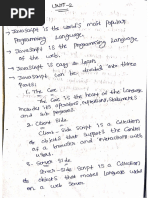 UNIT-2
→ JavaScript is the world's most popular
Programming Language.
→ JavaScript is the Programming Language
of the web.
→ JavaScript is easy to learn
→ JavaScript can be divided into three
parts
1. The Core
The Core is the heart of the language
Includes its operators, expressions, statements
and sub programs.
2. Client Side
Client-Side Script is a Collection
of objects that
of a browser and interactions with
users.
3. Server Side
Server-Side Script is a Collection
of objects that make language useful
on a web server.